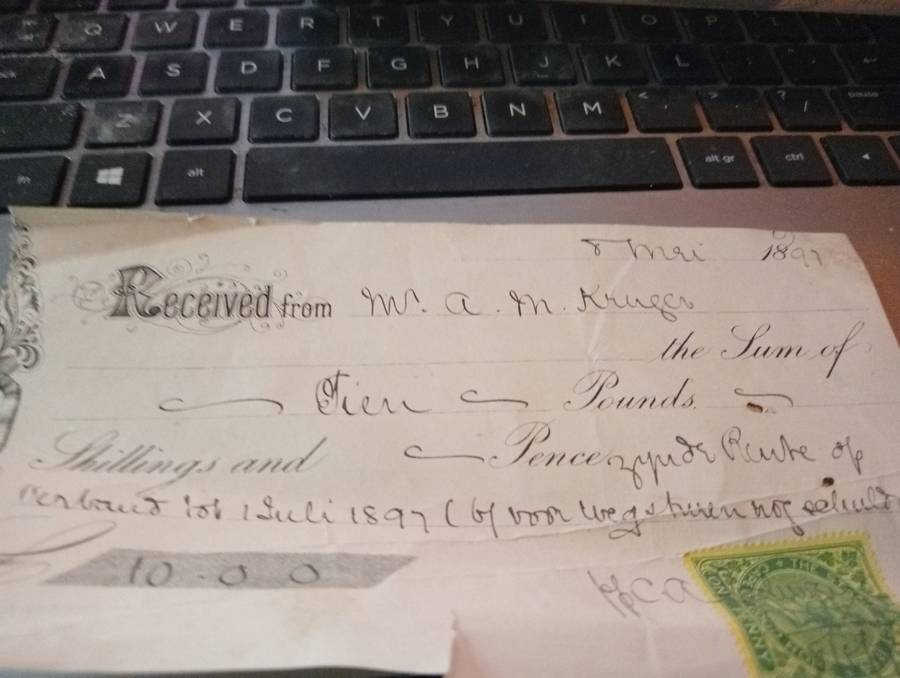 Q W E R T Y U I O P
A S D F G H J K L
Z X C V B N M < > ? /
alt alt gr ctrl
8 Mei 1897
Received from Mr. A. M. Kruger
the Sum of
Tien Pounds
Shillings and Pence zynde Rente op
verband tot 1 Juli 1897 ( voor nog schuld
10 - 0 0